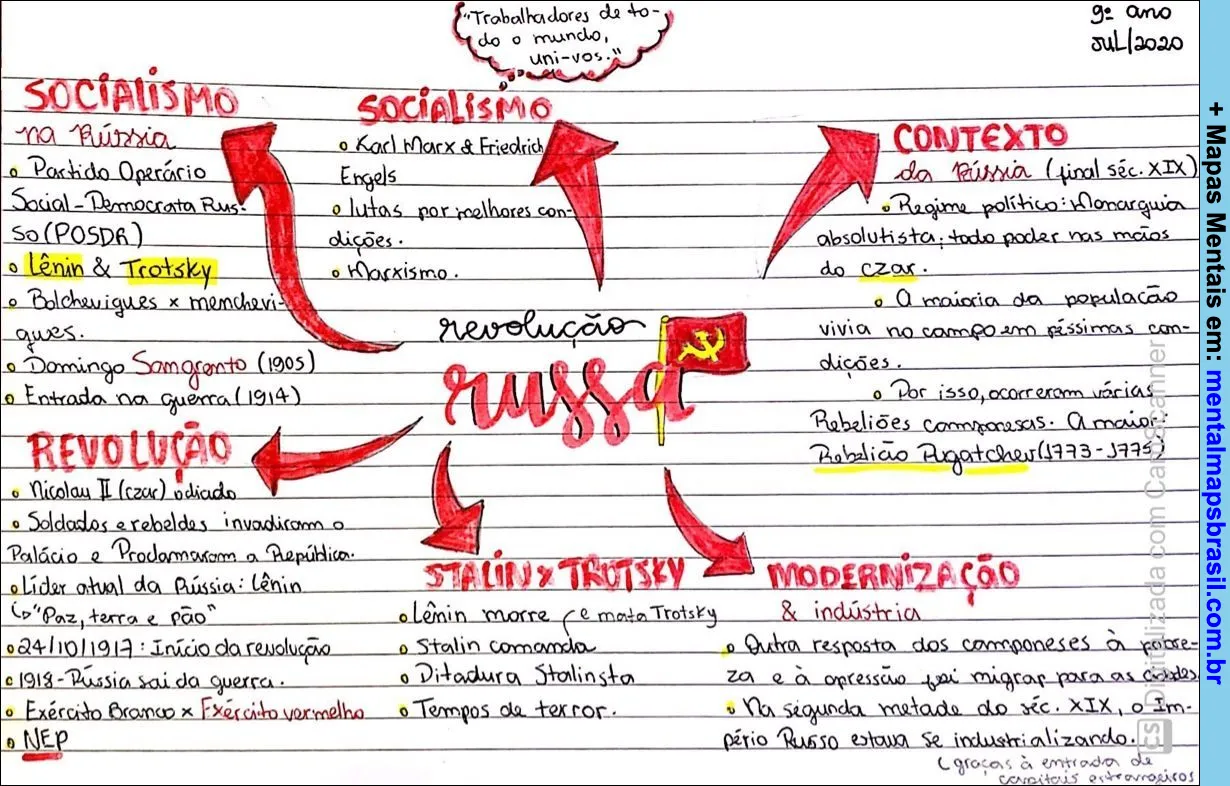 "Trabalhadores de to-
do o mundo,
uni-vos."
9º ano
JUL/2020
SOCIALISMO
na Rússia
• Partido Operário
Social-Democrata Rus-
so (POSDR)
• Lênin & Trotsky
• Bolcheviques x menchevi-
ques.
• Domingo Sangrento (1905)
• Entrada na guerra (1914)
SOCIALISMO
• Karl Marx & Friedrich
Engels
• lutas por melhores con-
dições.
• Marxismo.
CONTEXTO
da Rússia (final séc. XIX)
• Regime político: Monarquia
absolutista; todo poder nas mãos
do czar.
• A maioria da população
vivia no campo em péssimas con-
dições.
• Por isso, ocorreram várias
Rebeliões camponesas. A maior:
Rebelião Pugatchev (1773-1775)
revolução
russa
REVOLUÇÃO
• Nicolau II (czar) odiado
• Soldados e rebeldes invadiram o
Palácio e Proclamaram a República.
• Líder atual da Rússia: Lênin
↳ "Paz, terra e pão"
• 24/10/1917: Início da revolução
• 1918 - Rússia sai da guerra.
• Exército Branco x Exército vermelho
• NEP
STALIN x TROTSKY
• Lênin morre (e mata Trotsky
• Stalin comanda
• Ditadura Stalinsta
• Tempos de terror.
MODERNIZAÇÃO
& indústria
• Outra resposta dos camponeses à pobre-
za e à opressão foi migrar para as cidades
• Na segunda metade do séc. XIX, o Im-
pério Russo estava se industrializando.
(graças à entrada de
capitais estrangeiros
CS Digitalizada com CamScanner
+ Mapas Mentais em: mentalmapsbrasil.com.br